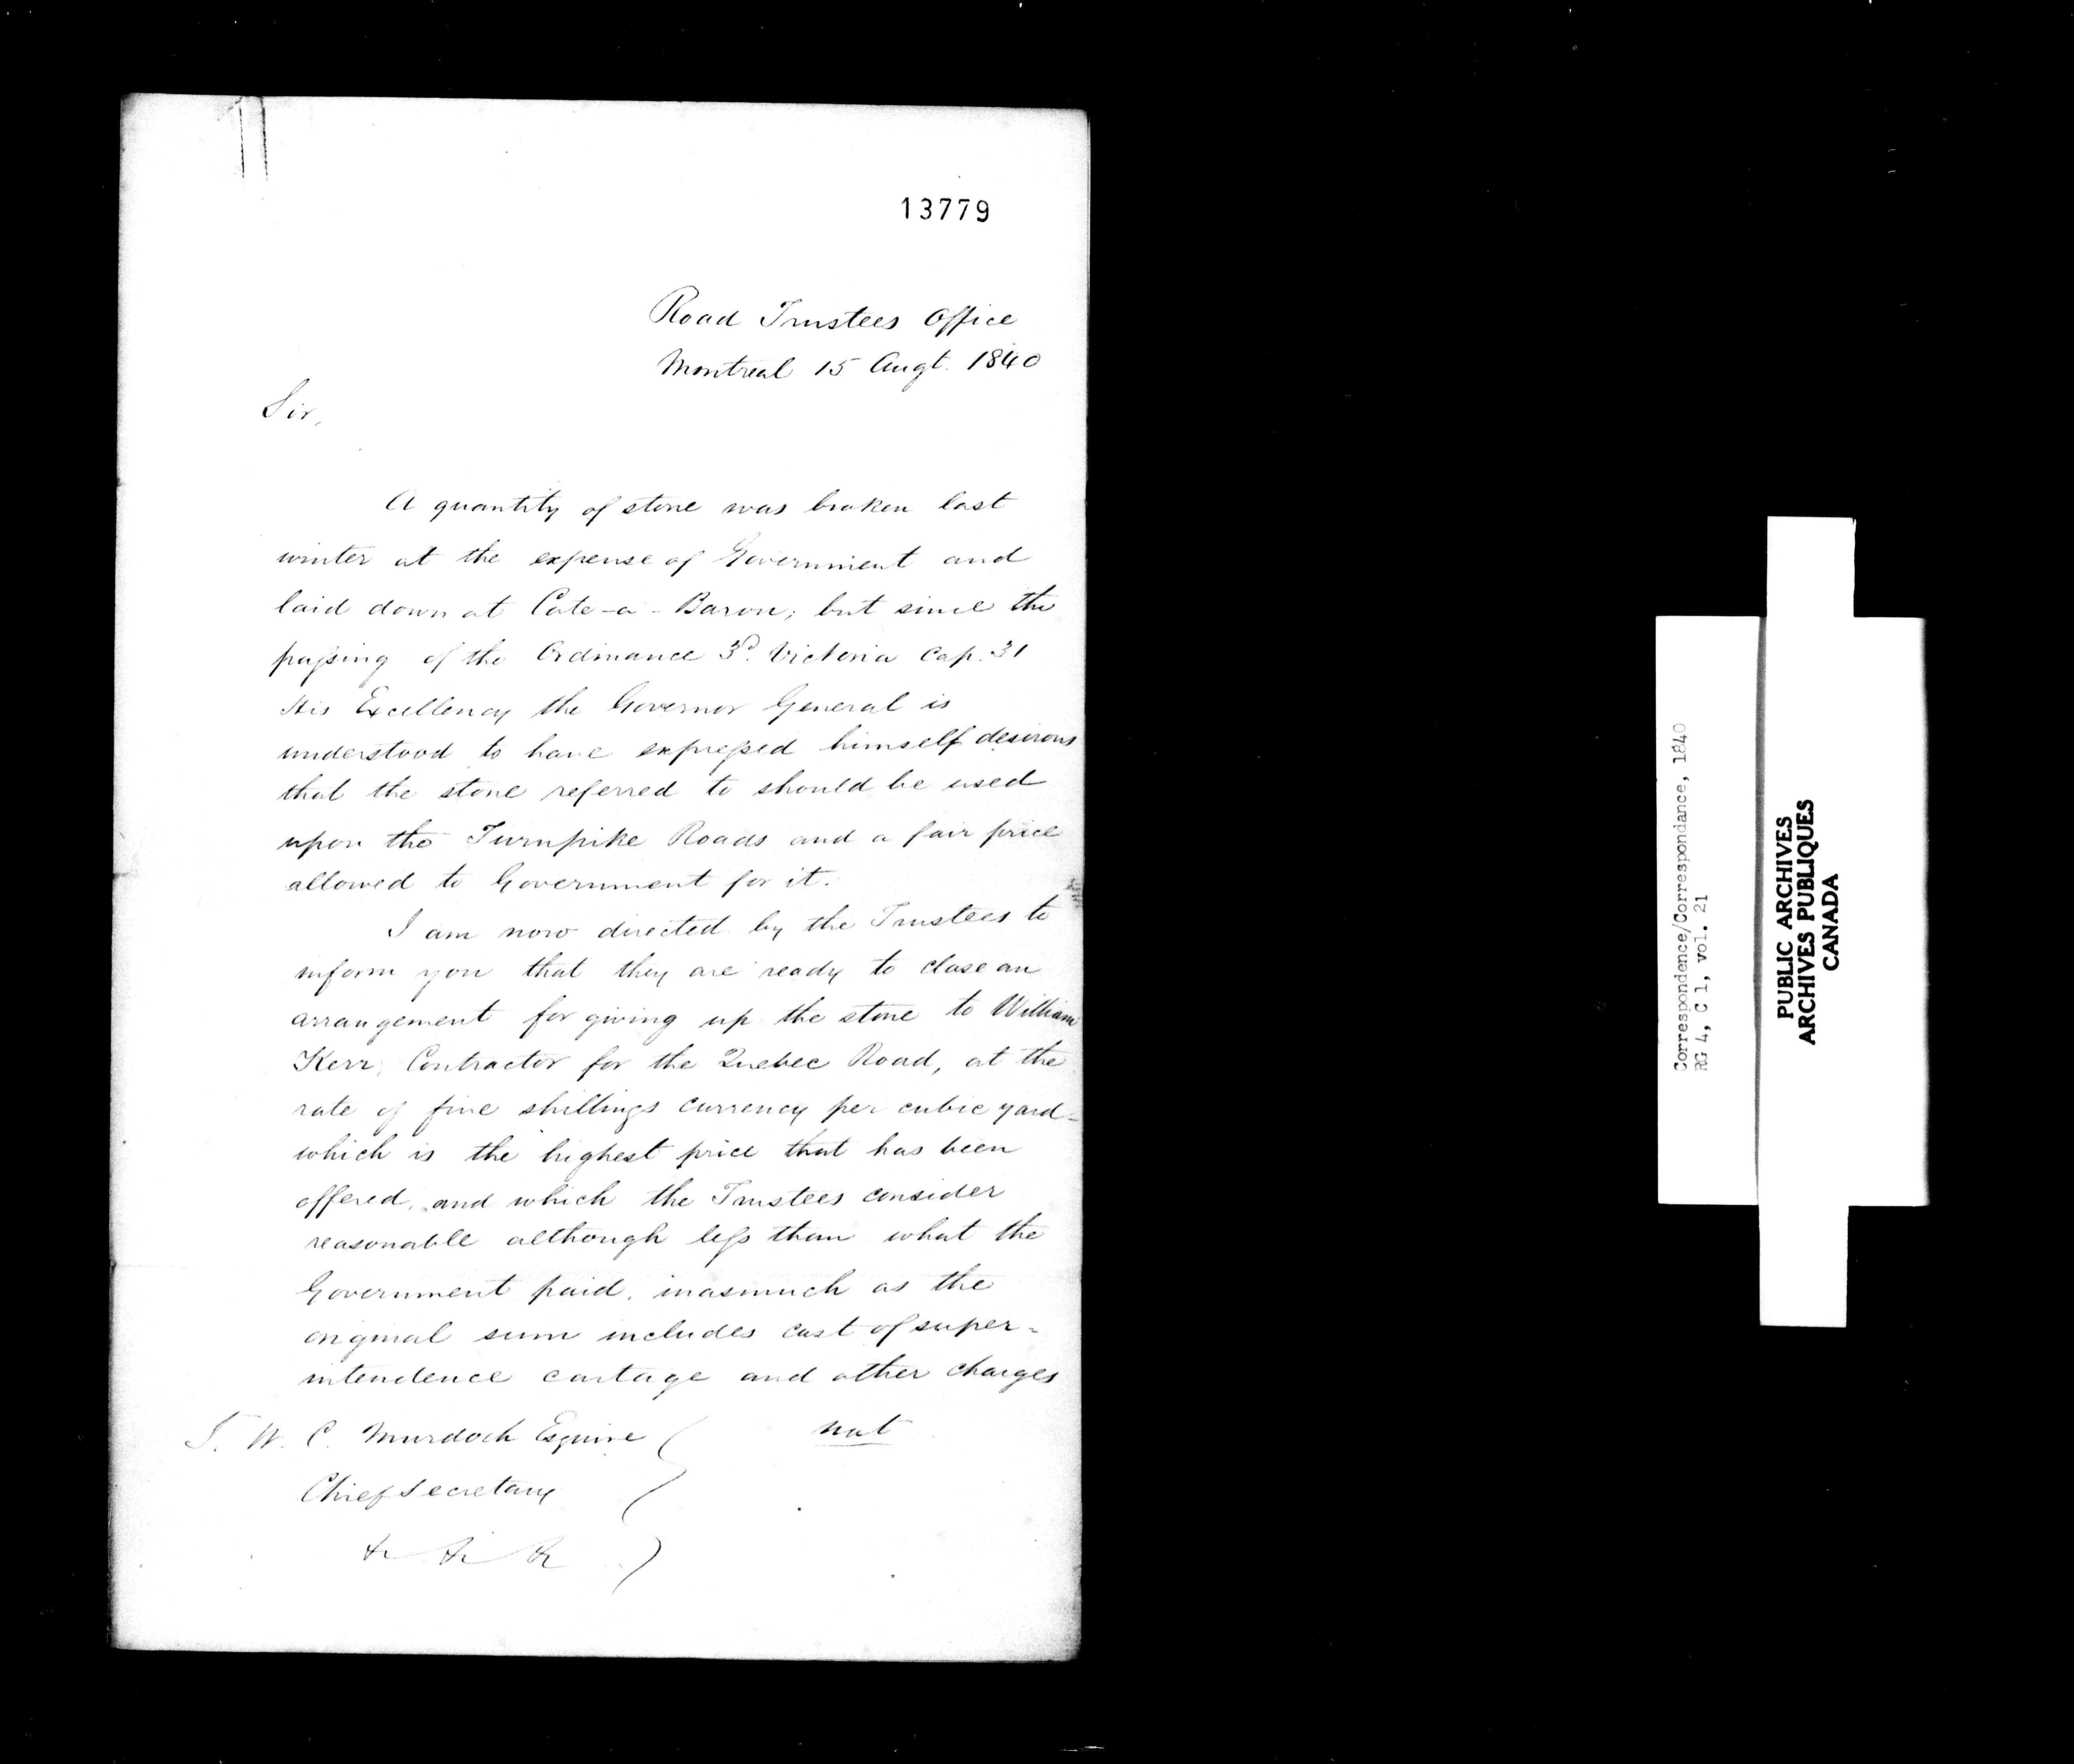 13779
Road Trustees Office
Montreal 15 Augt. 1840
Sir,
A quantity of stone was broken last
winter at the expense of Government and
laid down at Cote-a-Baron; but since the
passing of the Ordinance 3d. Victoria Cap. 31
His Excellency the Governor General is
understood to have expressed himself desirous
that the stone referred to should be used
upon the Turnpike Roads and a fair price
allowed to Government for it.
I am now directed by the Trustees to
inform you that they are ready to close an
arrangement for giving up the stone to William
Kerr, Contractor for the Quebec Road, at the
rate of five shillings currency per cubic yard-
which is the highest price that has been
offered, and which the Trustees consider
reasonable although less than what the
Government paid, inasmuch as the
original sum includes cost of super=
intendence cartage and other charges
not
T. W. C. Murdoch Esquire
Chief Secretary
&c &c &c
Correspondence/Correspondance, 1840
RG 4, C 1, vol. 21
PUBLIC ARCHIVES
ARCHIVES PUBLIQUES
CANADA